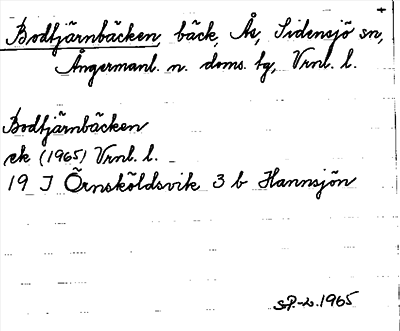 Bodtjärnbäcken, bäck, Ås, Sidensjö sn,
Ångermanl. n. doms. tg, Vrnl. l.
Bodtjärnbäcken
ek (1965) Vrnl. l.
19 J Örnsköldsvik 3 b Hannsjön
1965